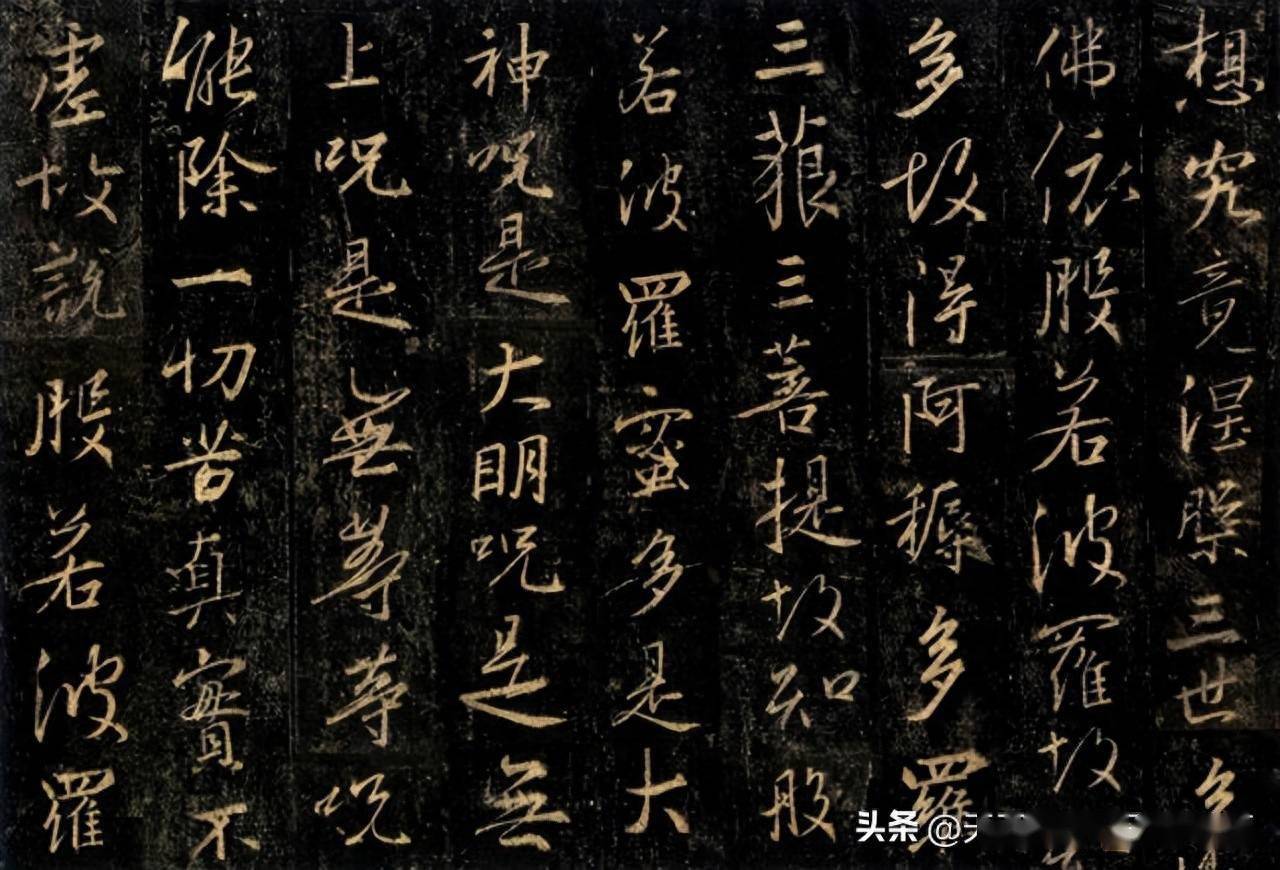 想究竟涅槃三世
佛依般若波羅故
多故得阿耨多羅
三藐三菩提故知般
若波羅蜜多是大
神呪是大明呪是無
上呪是無等等呪
能除一切苦真實不
虛故說般若波羅
头条 @